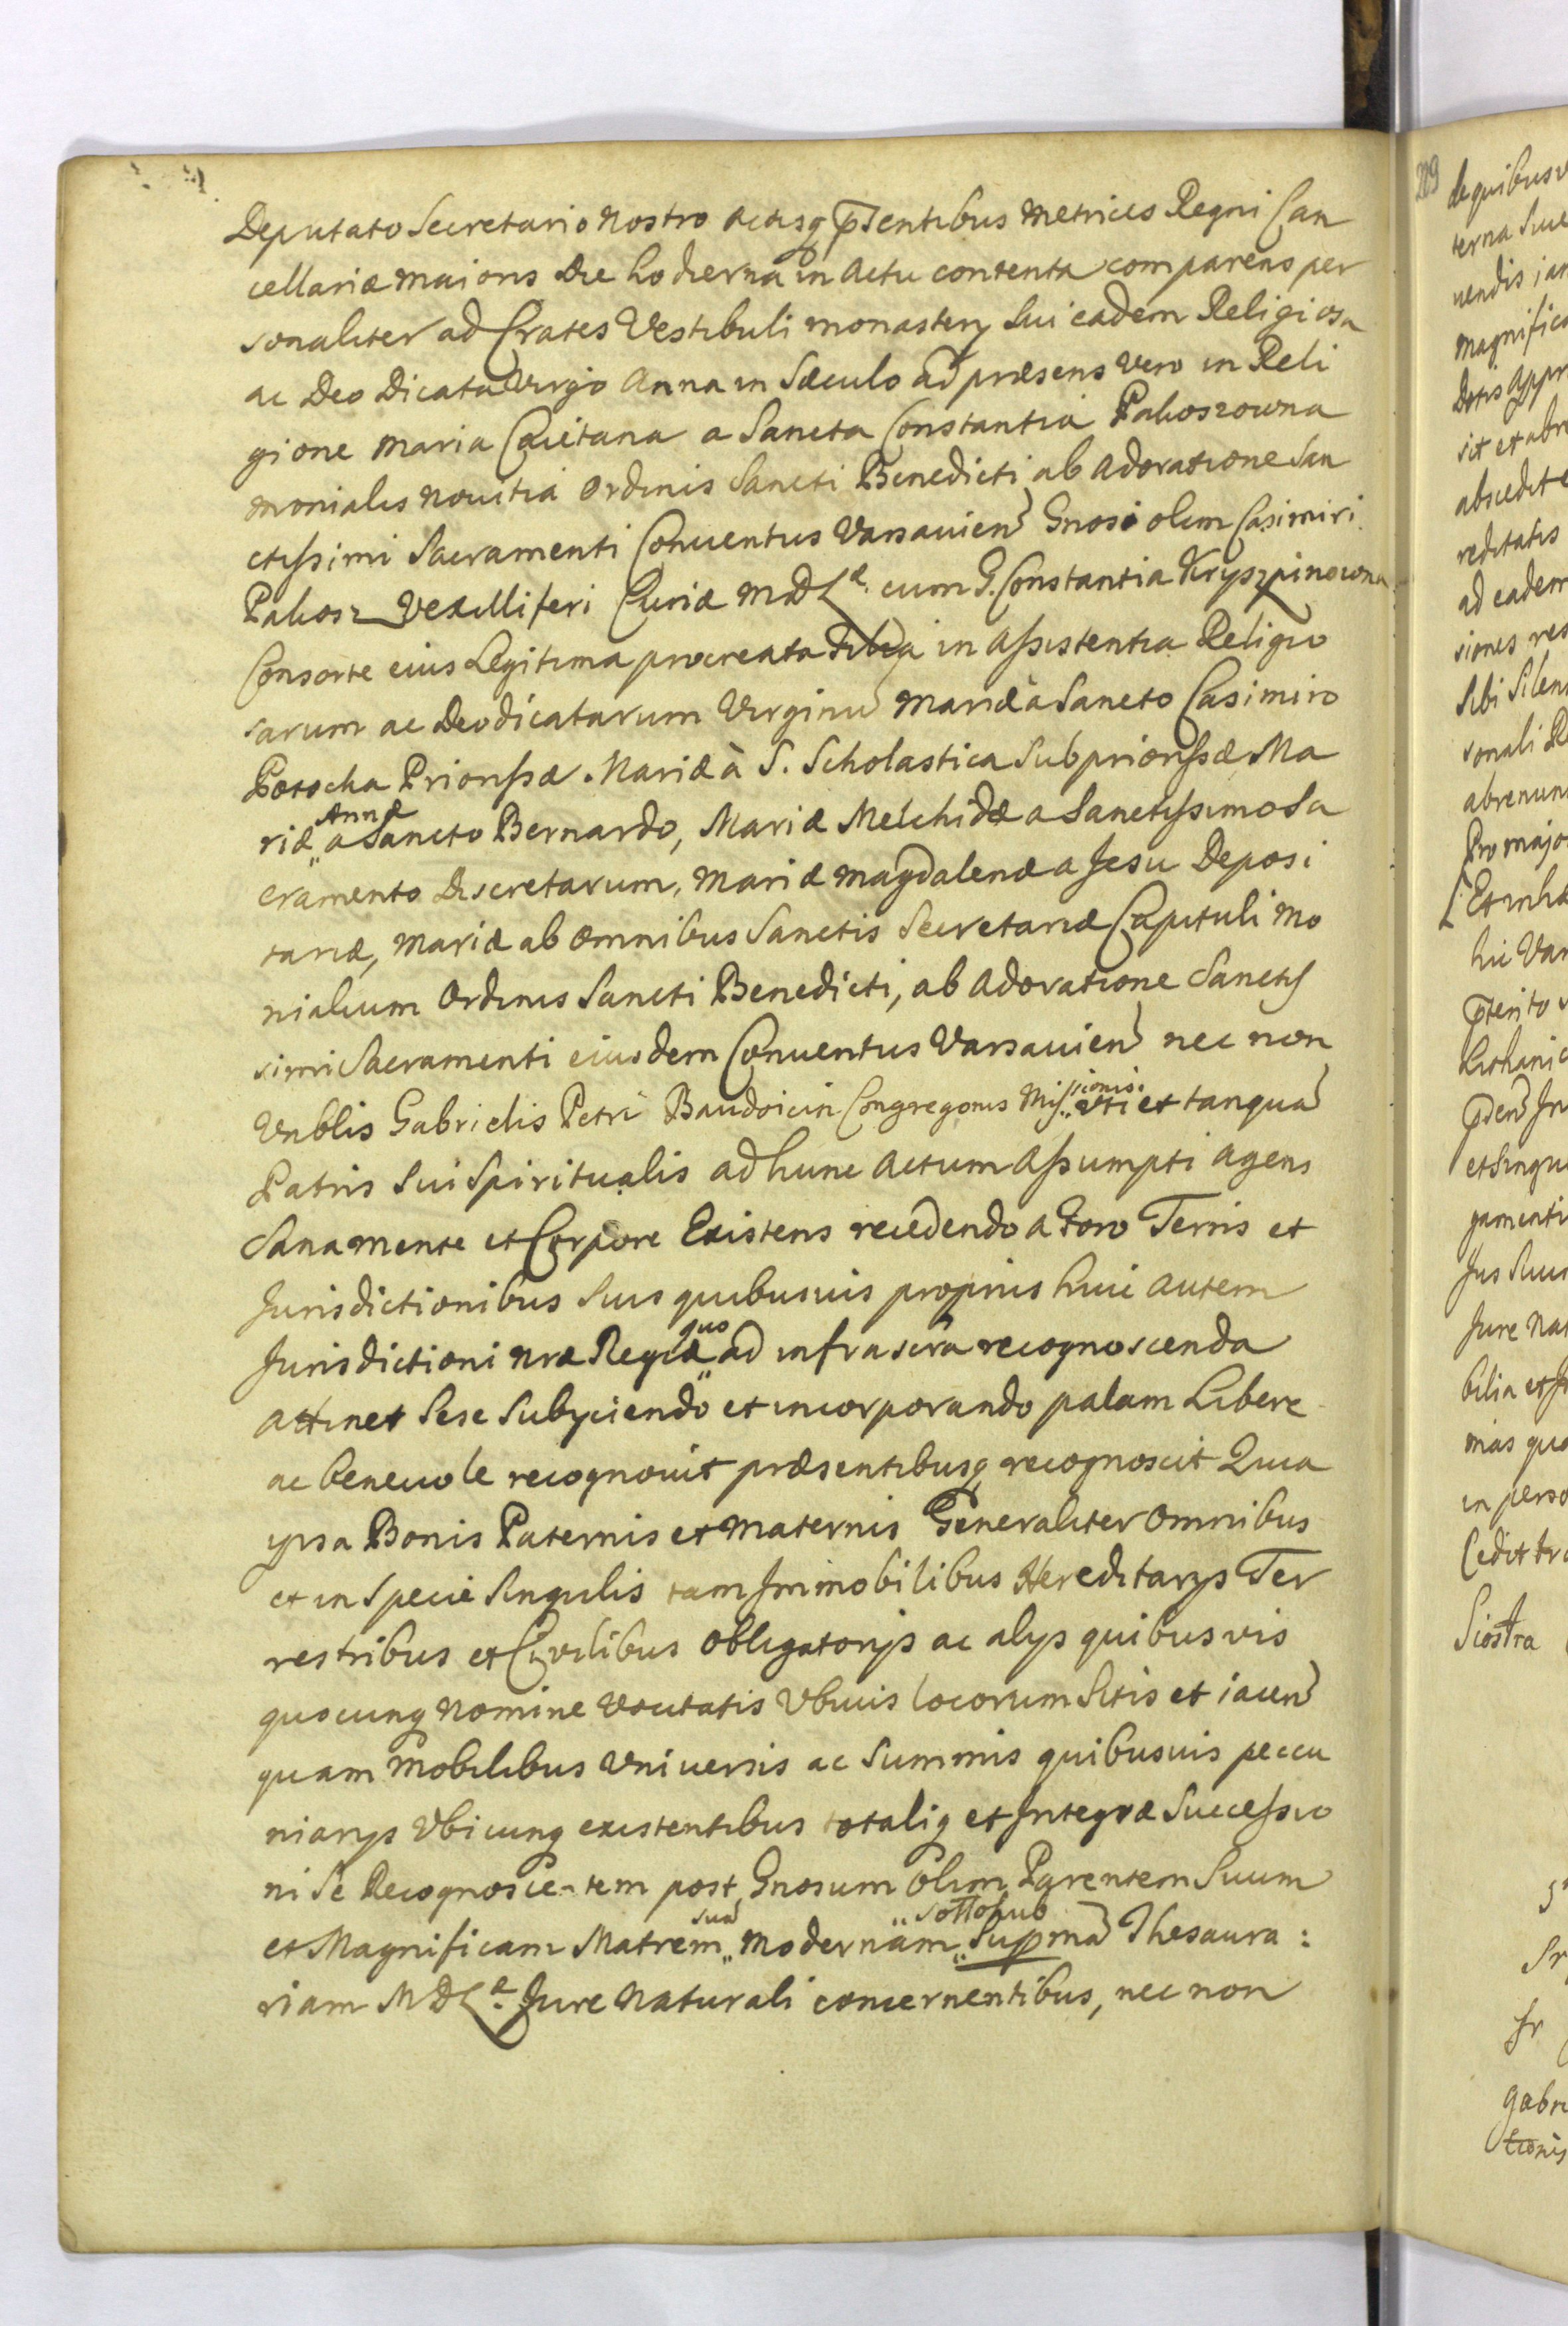 Deputato Secretario Nostro Actisq p̄sentibus Metrices Regni Can
cellariæ Maioris Die hodierna in Actu contenta comparens per
sonaliter ad Crates Vestibuli Monastery Sui eadem Religiosa
ac Deo Dicata Virgo Anna in Sæculo ad præsens vero in Reli
gione Maria Caietana a Sancta Constantia Pakoszowna
monialis Novitia Ordinis Sancti Benedicti ab Adoratione San
ctissimi Sacramenti Conventus Varsavien Gnosi olim Casimiri
Pakosz Vexilliferi Curiæ MDL. cum G. Constantia Kryszpinowna
Consorte eius Legitima procreata Filia in Assistentia Religio
sarum ac Deodicatarum Virginu Mariæ à Sancto Casimiro
Potocka Priorissæ Mariæ à S. Scholastica Subpriorissæ, Ma
riæ Annæ a Sancto Bernardo, Mariæ Melchidæ a Sanctissimo Sa
cramento Discretarum, Mariæ Magdalenæ a Jesu Deposi
tariæ, Mariæ ab omnibus Sanctis Secretariæ Capituli Mo
nialium Ordinis Sancti Benedicti, ab Adoratione Sanctis
simi Sacramenti eiusdem Conventus Varsavien nec non
Vnblis Gabrielis Petri Baudoicin Congregonis Missionis. uti et tanqua
Patris Sui Spiritualis ad hunc Actum Assumpti agens
Sana mente et Corpore Existens recedendo a Foro Terris et
Jurisdictionibus Suis quibusvis proprius huic autem
Jurisdictioni nræ Regiæ quo ad infrascra recognoscenda
attinet Sese Subyciendo et incorporando palam Libere
ac benevole recognovit præsentibusq recognoscit Quia
ipsa Bonis Paternis et Maternis Generaliter Omnibus
et in Specie Singulis tam Immobilibus Hereditarys Ter
restribus et Civilibus obligatorys ac alys quibusvis
quocunq Nomine Vocitatis Vbivis locorum Sitis et iacen
quam Mobilibus Vniversis ac Summis quibusvis peccu
niarys Vbicunq existentibus totaliq et Integræ Successio
ni Se Recognoscentem post Gnosum olim Parentem Suum
et Magnificam Matrem sua Modernam Sottohub Suprma Thesaura:
riam MDL. Jure Naturali concernentibus, nec non
209
de quibusv
terna Suc
uendis iam
Magnifica
Dotis Appr
sit et abre
abscedit e
reditatis
ad eadem
siones res
Sibi Silen
sonali R
abrenun
Pro majo
Et inha
hic Var
p̄terito
Lithanic
p̄den In
et Singu
gamenti
Jus Suu
Jure Nat
bilia et I
mas quo
in perso
Cedit tr
Siostra
Sr
Jr
Gabri
tionis